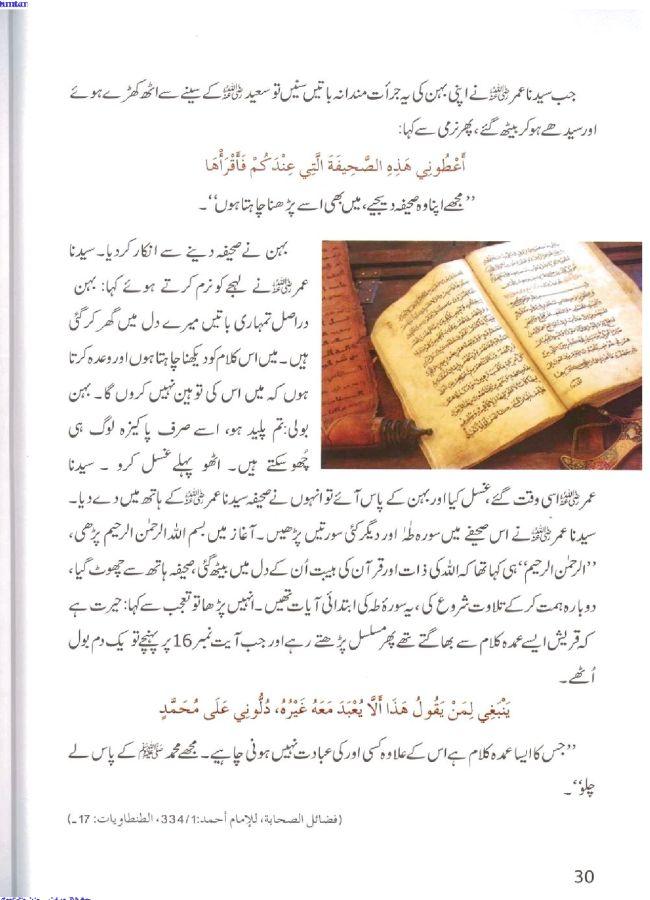 جب سیدنا عمر رضی اللہ عنہ نے اپنی بہن کی یہ جرأت مندانہ باتیں سنیں تو سعید رضی اللہ عنہ کے سینے سے اٹھ کھڑے ہوئے
اور سیدھے ہو کر بیٹھ گئے، پھر نرمی سے کہا:
أَعْطُونِي هَذِهِ الصَّحِيفَةَ الَّتِي عِنْدَكُمْ فَأَقْرَأْهَا
’’مجھے اپنا وہ صحیفہ دیجیے، میں بھی اسے پڑھنا چاہتا ہوں‘‘۔
بہن نے صحیفہ دینے سے انکار کر دیا۔ سیدنا
عمر رضی اللہ عنہ نے لہجے کو نرم کرتے ہوئے کہا: بہن
دراصل تمہاری باتیں میرے دل میں گھر کر گئی
ہیں۔ میں اس کلام کو دیکھنا چاہتا ہوں اور وعدہ کرتا
ہوں کہ میں اس کی توہین نہیں کروں گا۔ بہن
بولی: تم پلید ہو، اسے صرف پاکیزہ لوگ ہی
چُھو سکتے ہیں۔ اٹھو پہلے غسل کرو۔ سیدنا
عمر رضی اللہ عنہ اسی وقت گئے، غسل کیا اور بہن کے پاس آئے تو انہوں نے صحیفہ سیدنا عمر رضی اللہ عنہ کے ہاتھ میں دے دیا۔
سیدنا عمر رضی اللہ عنہ نے اس صحیفے میں سورہ طٰہٰ اور دیگر کئی سورتیں پڑھیں۔ آغاز میں بسم اللہ الرحمٰن الرحیم پڑھی،
’’الرحمٰن الرحیم‘‘ ہی کہا تھا کہ اللہ کی ذات اور قرآن کی ہیبت اُن کے دل میں بیٹھ گئی، صحیفہ ہاتھ سے چھوٹ گیا،
دوبارہ ہمت کر کے تلاوت شروع کی، یہ سورۂ طہ کی ابتدائی آیات تھیں۔ انہیں پڑھا تو تعجب سے کہا: حیرت ہے
کہ قریش ایسے عمدہ کلام سے بھاگتے تھے پھر مسلسل پڑھتے رہے اور جب آیت نمبر 16 پر پہنچے تو یک دم بول
اُٹھے۔
يَنْبَغِي لِمَنْ يَقُولُ هَذَا أَلَّا يُعْبَدَ مَعَهُ غَيْرُهُ، دُلُّونِي عَلَى مُحَمَّدٍ
’’جس کا ایسا عمدہ کلام ہے اس کے علاوہ کسی اور کی عبادت نہیں ہونی چاہیے۔ مجھے محمد ﷺ کے پاس لے
چلو‘‘۔
(فضائل الصحابة، للإمام أحمد: 334/1، الطنطاويات: 17۔)
30